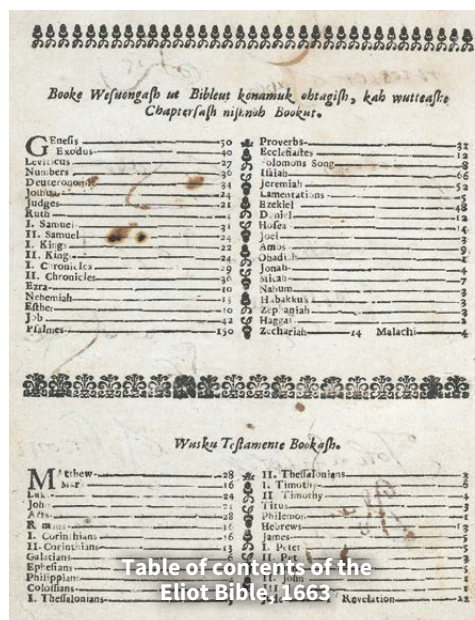 Booke Weſuongaſh ut Bibleut konamuk ohtagiſh, kah wutteaſhe
Chapterſaſh niſh noh Bookut.
Geneſis 50
Exodus 40
Leviticus 27
Numbers 36
Deuteronomie 34
Joſhua 24
Judges 21
Ruth
I. Samuel 31
II. Samuel 24
I. Kings 22
II. King
I. Chronicles 29
II. Chronicles 36
Ezra 10
Nehemiah 13
Eſther 10
Job 42
Pſalmes 150
Proverbs 31
Eccleſiaſtes 12
Solomons Song 8
Iſaiah 66
Jeremiah 52
Lamentations 5
Ezekiel 48
Daniel 12
Hoſea 14
Joel 3
Amos 9
Obadiah
Jonah 4
Micah 7
Nahum 3
Habakkuk 3
Zephaniah 3
Haggai 2
Zechariah 14 Malachi 4
Wusku Teſtamente Bookaſh.
Matthew 28
Mark 16
Luke 24
John 21
Acts 28
Romans 16
I. Corinthians 16
II. Corinthians 13
Galatians
Epheſians
Philippian
Coloſſians
I. Theſſalonians
II. Theſſalonians 3
I. Timothy 6
II Timothy
Titus 3
Philemon
Hebrews 13
James 5
I. Peter 5
II. Pet
II. John
Revelation 22
Table of contents of the
Eliot Bible, 1663